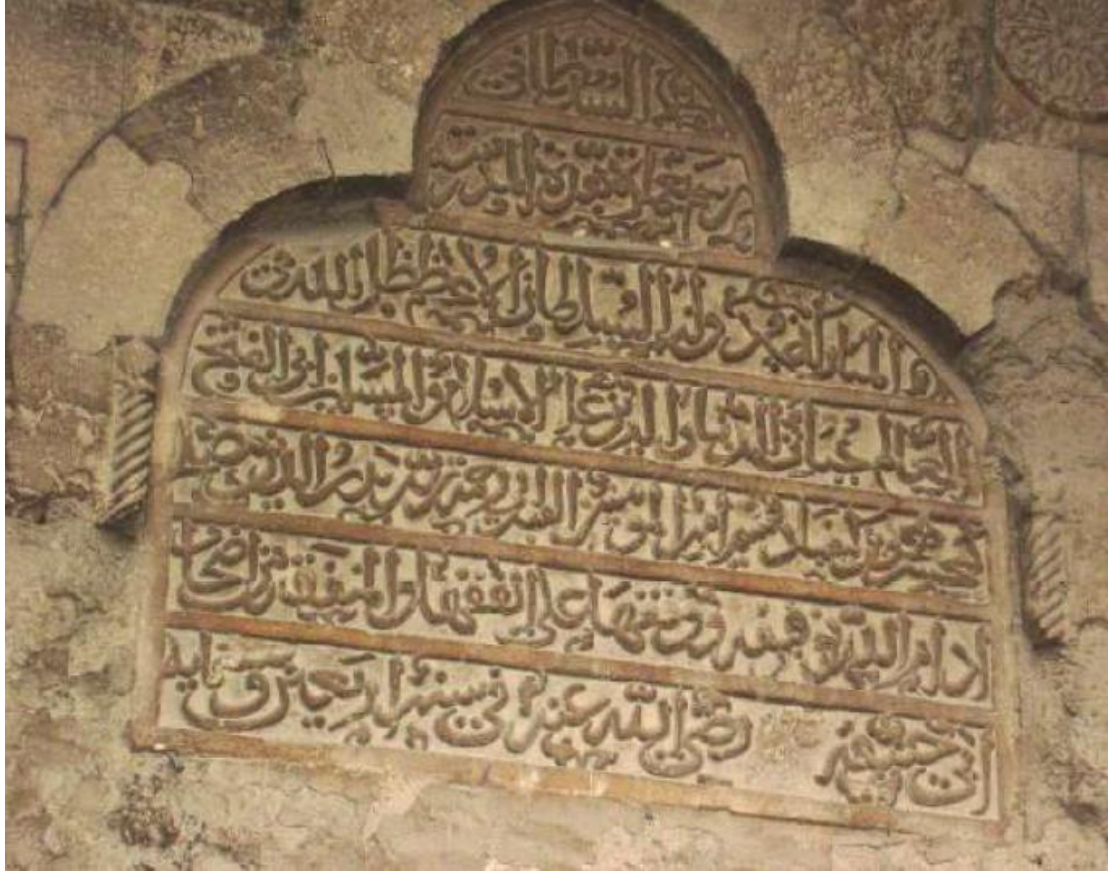 السلطاني
رسم بعمارة هذه المدرسة
المباركة في دولة السلطان الاعظم ظل الله في
العالم غياث الدنيا والدين علاء الاسلام والمسلمين ابو الفتح
كيخسرو بن كيقباد قسيم امير المؤمنين بدر الدين مصلح
ادام الله توفيقه ووقفها على الفقهاء والمتفقهة من اصحاب
ابي حنيفة رضي الله عنه في سنة اربعين وستماية